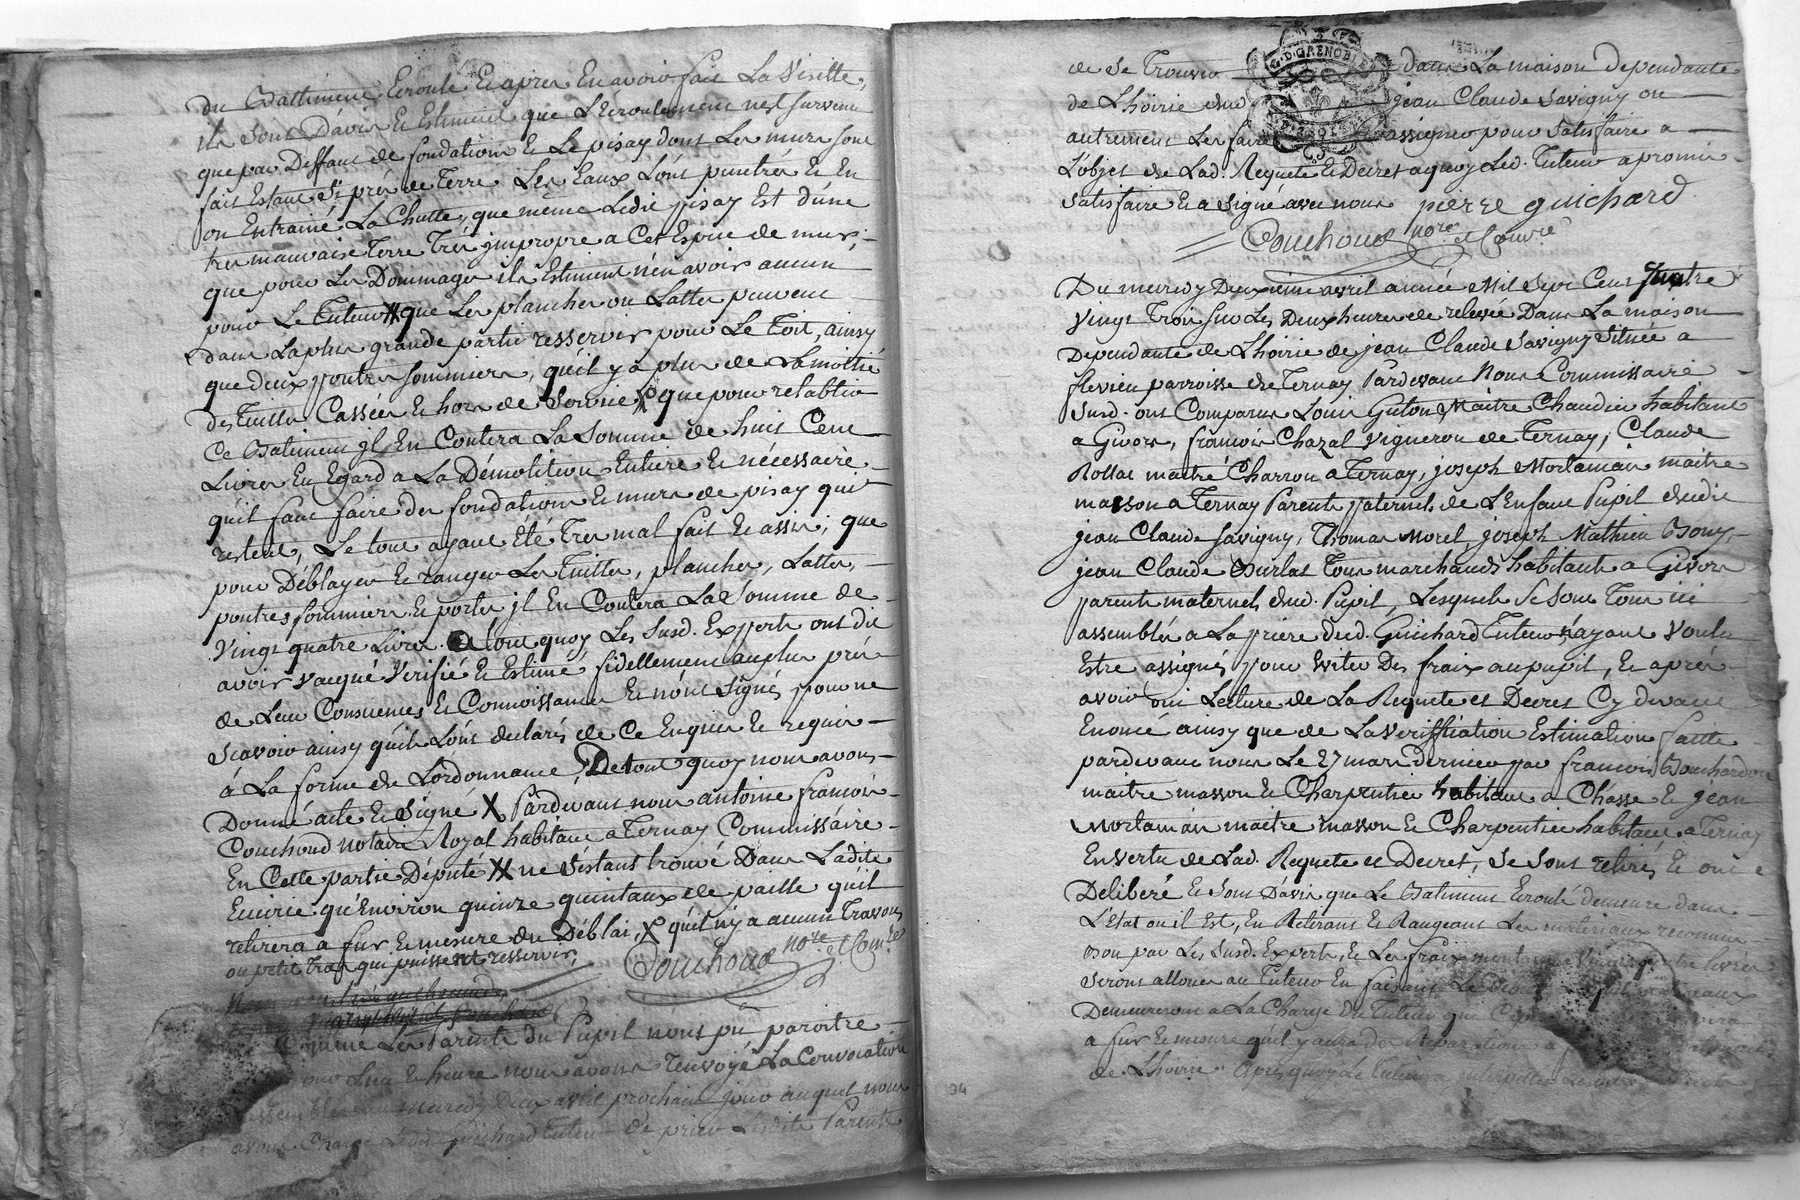 du Battiment Ecroulé Et apres En avoir fait La Visitte,
ils sont Davis Et Estiment que L'Ecroulement nest survenu
que par Deffaut de fondations Et Le pisay dont Les murs sont
fait Estant si près de Terre Les Eaux L'ont penetrés Et En
ont Entrainé La Chutte, que même Ledit pisay Est d'une
tres mauvaise Terre Très jmpropre a Cet Espece de murs,
que pour Les Dommages ils Estiment n'en avoir aucun
pour Le Tuteur X que Les planches ou Lattes peuvent
dans La plus grande partie resservir pour Le Toit, ainsy
que deux poutres sommiers, qu'il y a plus de La moitié
des Tuilles Cassées Et hors de Service X que pour retablir
Ce Batiment jl En Coutera La Somme de huit Cent
Livres En Egard a La Démolition Entiere Et nécessaire
qu'il faut faire des fondations Et murs de pisay qui
restent, Le tout ayant Eté Tres mal fait Et assis; que
pour Déblayer Et ranger Les Tuilles, planches, Lattes,
poutres sommiers Et portes jl En Coutera La Somme de
Vingt quatre Livres. a tout quoy Les Susd. Experts ont dit
avoir vaqué Verifié Et Estimé fidellement au plus près
de Leur Consciences Et Connoissance Et n'ont signés pour ne
Scavoir ainsy qu'ils L'ont declarés de Ce Enquis Et requis
à La forme de L'ordonnance, De tout quoy nous avons
Donné acte Et Signé X Pardevant nous antoine françois
Couchoud notaire Royal habitant a Ternay Commissaire
En Cette partie Député XX ne s'estant trouvé Dans Ladite
Ecurie qu'Environ quinze quintaux de paille qu'il
retirera a fur Et mesure du Déblai, X qu'il n'y a aucun Travons
ou petit Traf qui puissent resservir,
Couchoud nore et Comre
Comme Les Parents du Pupil n'ont pû paroitre
Lieu Et heure nous avons renvoyé La Convocation
assemblée au mercredy Deux avril prochain jour auquel nous
avons Chargé Ledit Guichard Tuteur de prier Lesdits Parents
de se Trouver dans La maison dependante
de L'hoirie dud. jean Claude Savigny ou
autrement Les faire assigner pour satisfaire a
L'objet de Lad. Requete Et Decret a quoy Led. Tuteur a promis
satisfaire Et a signé avec nous pierre guichard
Couchoud nore et Comre
G. D. GRENOBLE
Du mercredy Deuxieme avril année Mil Sept Cent quatre
Vingt Trois sur Les Deux heures de relevée Dans La maison
Dependante de L'hoirie de jean Claude Savigny située a
flevieu parroisse de Ternay Pardevant Nous Commissaire
Susd. ont Comparus Louis Guton, Maitre Chaudier habitant
a Givors, françois Chazal Vigneron de Ternay, Claude
Rollat maitre Charron a Ternay, joseph Mortamais maitre
masson a Ternay Parents paternels de L'Enfant Pupil dudit
jean Claude Savigny, Thomas Morel, joseph Mathieu Bony,
jean Claude Burlat Tous marchands habitants a Givors
parents maternels dud. Pupil, Lesquels se sont Tous ici
assemblés a La priere dud. Guichard Tuteur n'ayant voulu
Estre assignés pour eviter Des fraix au pupil, Et après
avoir oui Lecture de La Requete et Decret Cy devant
Enoncé ainsy que de La Veriffication Estimation faitte
pardevant nous Le 27 mars dernier par francois Bouchardon
maitre masson Et Charpentier habitant a Chasse Et jean
Mortamais maitre masson Et Charpentier habitant a Ternay
En vertu de Lad. Requete et Decret, se sont retirés Et ont
Deliberé Et sont Davis que Le Batiment Ecroulé demeure dans
L'Etat ou il Est, En Retirant Et Rangeant Les materiaux reconnus
bon par Les Susd. Experts, Et Les fraix montant a Vingt quatre livres
seront alloués au Tuteur En faisant Le
Demeureront a La Charge du Tuteur qui
a fur Et mesure qu'il y aura de Reparations a
de L'hoirie. Apres quoy Le Tuteur a
34